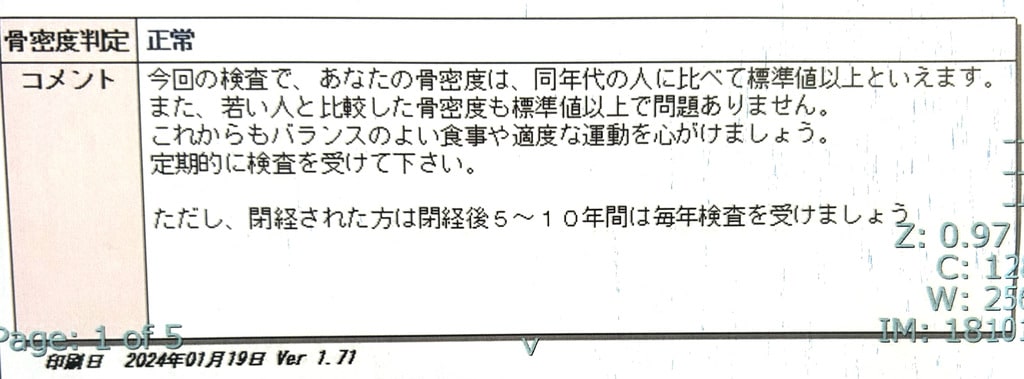 骨密度判定 正常
コメント 今回の検査で、あなたの骨密度は、同年代の人に比べて標準値以上といえます。
また、若い人と比較した骨密度も標準値以上で問題ありません。
これからもバランスのよい食事や適度な運動を心がけましょう。
定期的に検査を受けて下さい。
ただし、閉経された方は閉経後5〜10年間は毎年検査を受けましょう
Z: 0.97
C: 128
W: 256
Page: 1 of 5
V
IM: 18101
印刷日 2024年01月19日 Ver 1.71